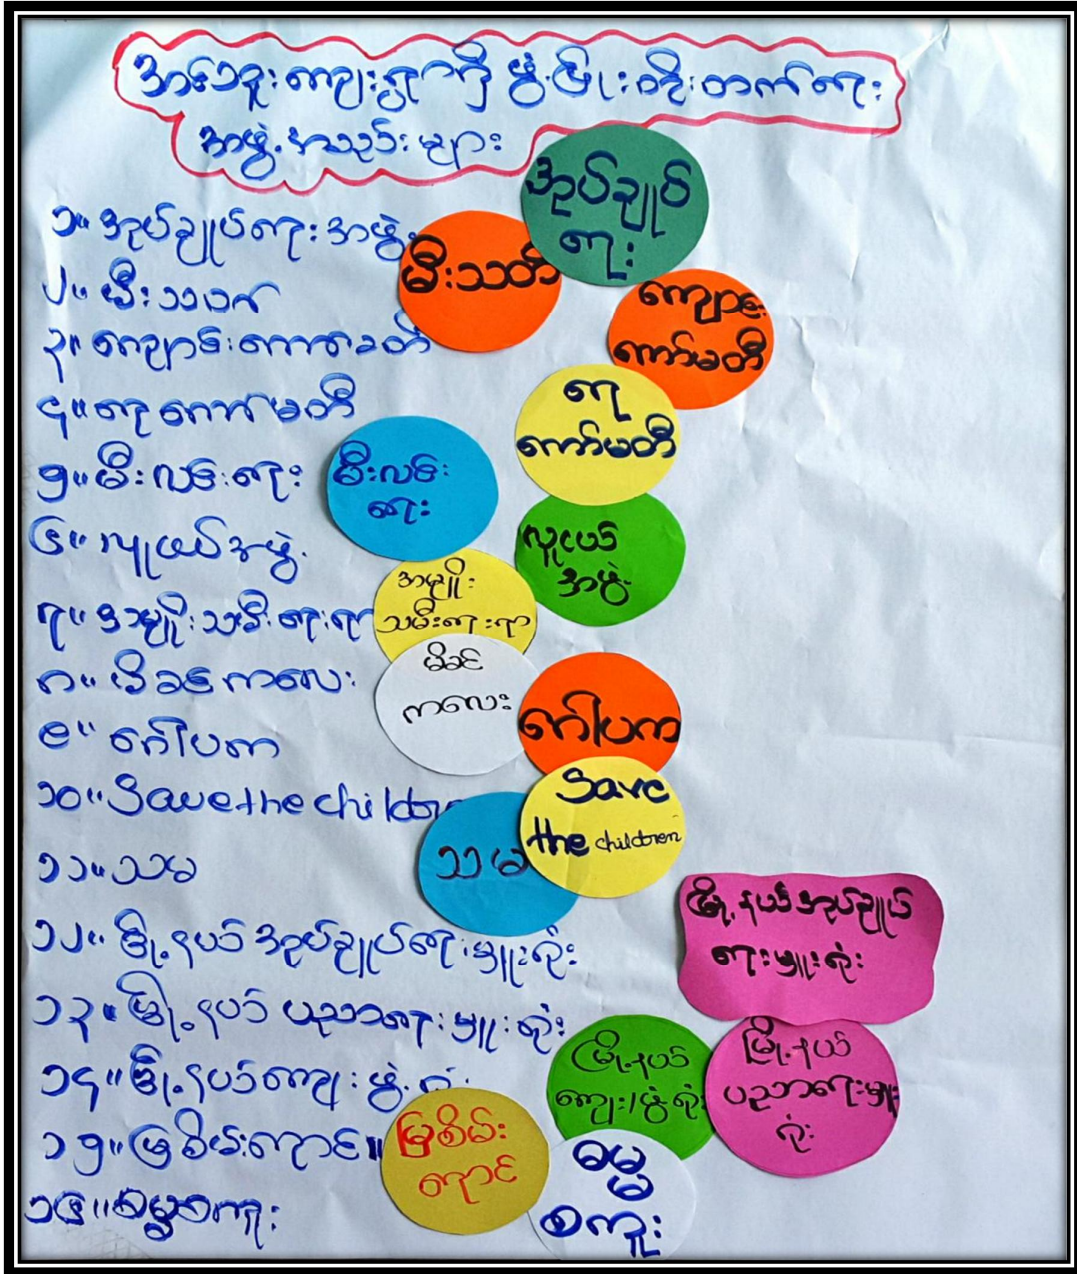 အင်ဒူးကျေးရွာရှိ ဖွံ့ဖြိုးတိုးတက်ရေး
အဖွဲ့အစည်းများ
၁။ အုပ်ချုပ်ရေးအဖွဲ့
၂။ မီးသတ်
၃။ ကျောင်းကော်မတီ
၄။ ရေကော်မတီ
၅။ မီးလင်းရေး
၆။ လူငယ်အဖွဲ့
၇။ အမျိုးသမီးရေးရာ
၈။ မိခင်ကလေး
၉။ ဂေါပက
၁၀။ Save the children
၁၁။ သမ
၁၂။ မြို့နယ်အုပ်ချုပ်ရေးမှူးရုံး
၁၃။ မြို့နယ်ပညာရေးမှူးရုံး
၁၄။ မြို့နယ်ကျေးဖွံ့ရုံး
၁၅။ မြစိမ်းရောင်
၁၆။ ဓမ္မစကူး
အုပ်ချုပ်
ရေး
မီးသတ်
ကျောင်း
ကော်မတီ
ရေ
ကော်မတီ
မီးလင်း
ရေး
လူငယ်
အဖွဲ့
အမျိုး
သမီးရေးရာ
မိခင်
ကလေး
ဂေါပက
Save
the children
သမ
မြို့နယ်အုပ်ချုပ်
ရေးမှူးရုံး
မြို့နယ်
ကျေး/ဖွံ့ရုံး
မြို့နယ်
ပညာရေးမှူး
ရုံး
မြစိမ်း
ရောင်
ဓမ္မ
စကူး